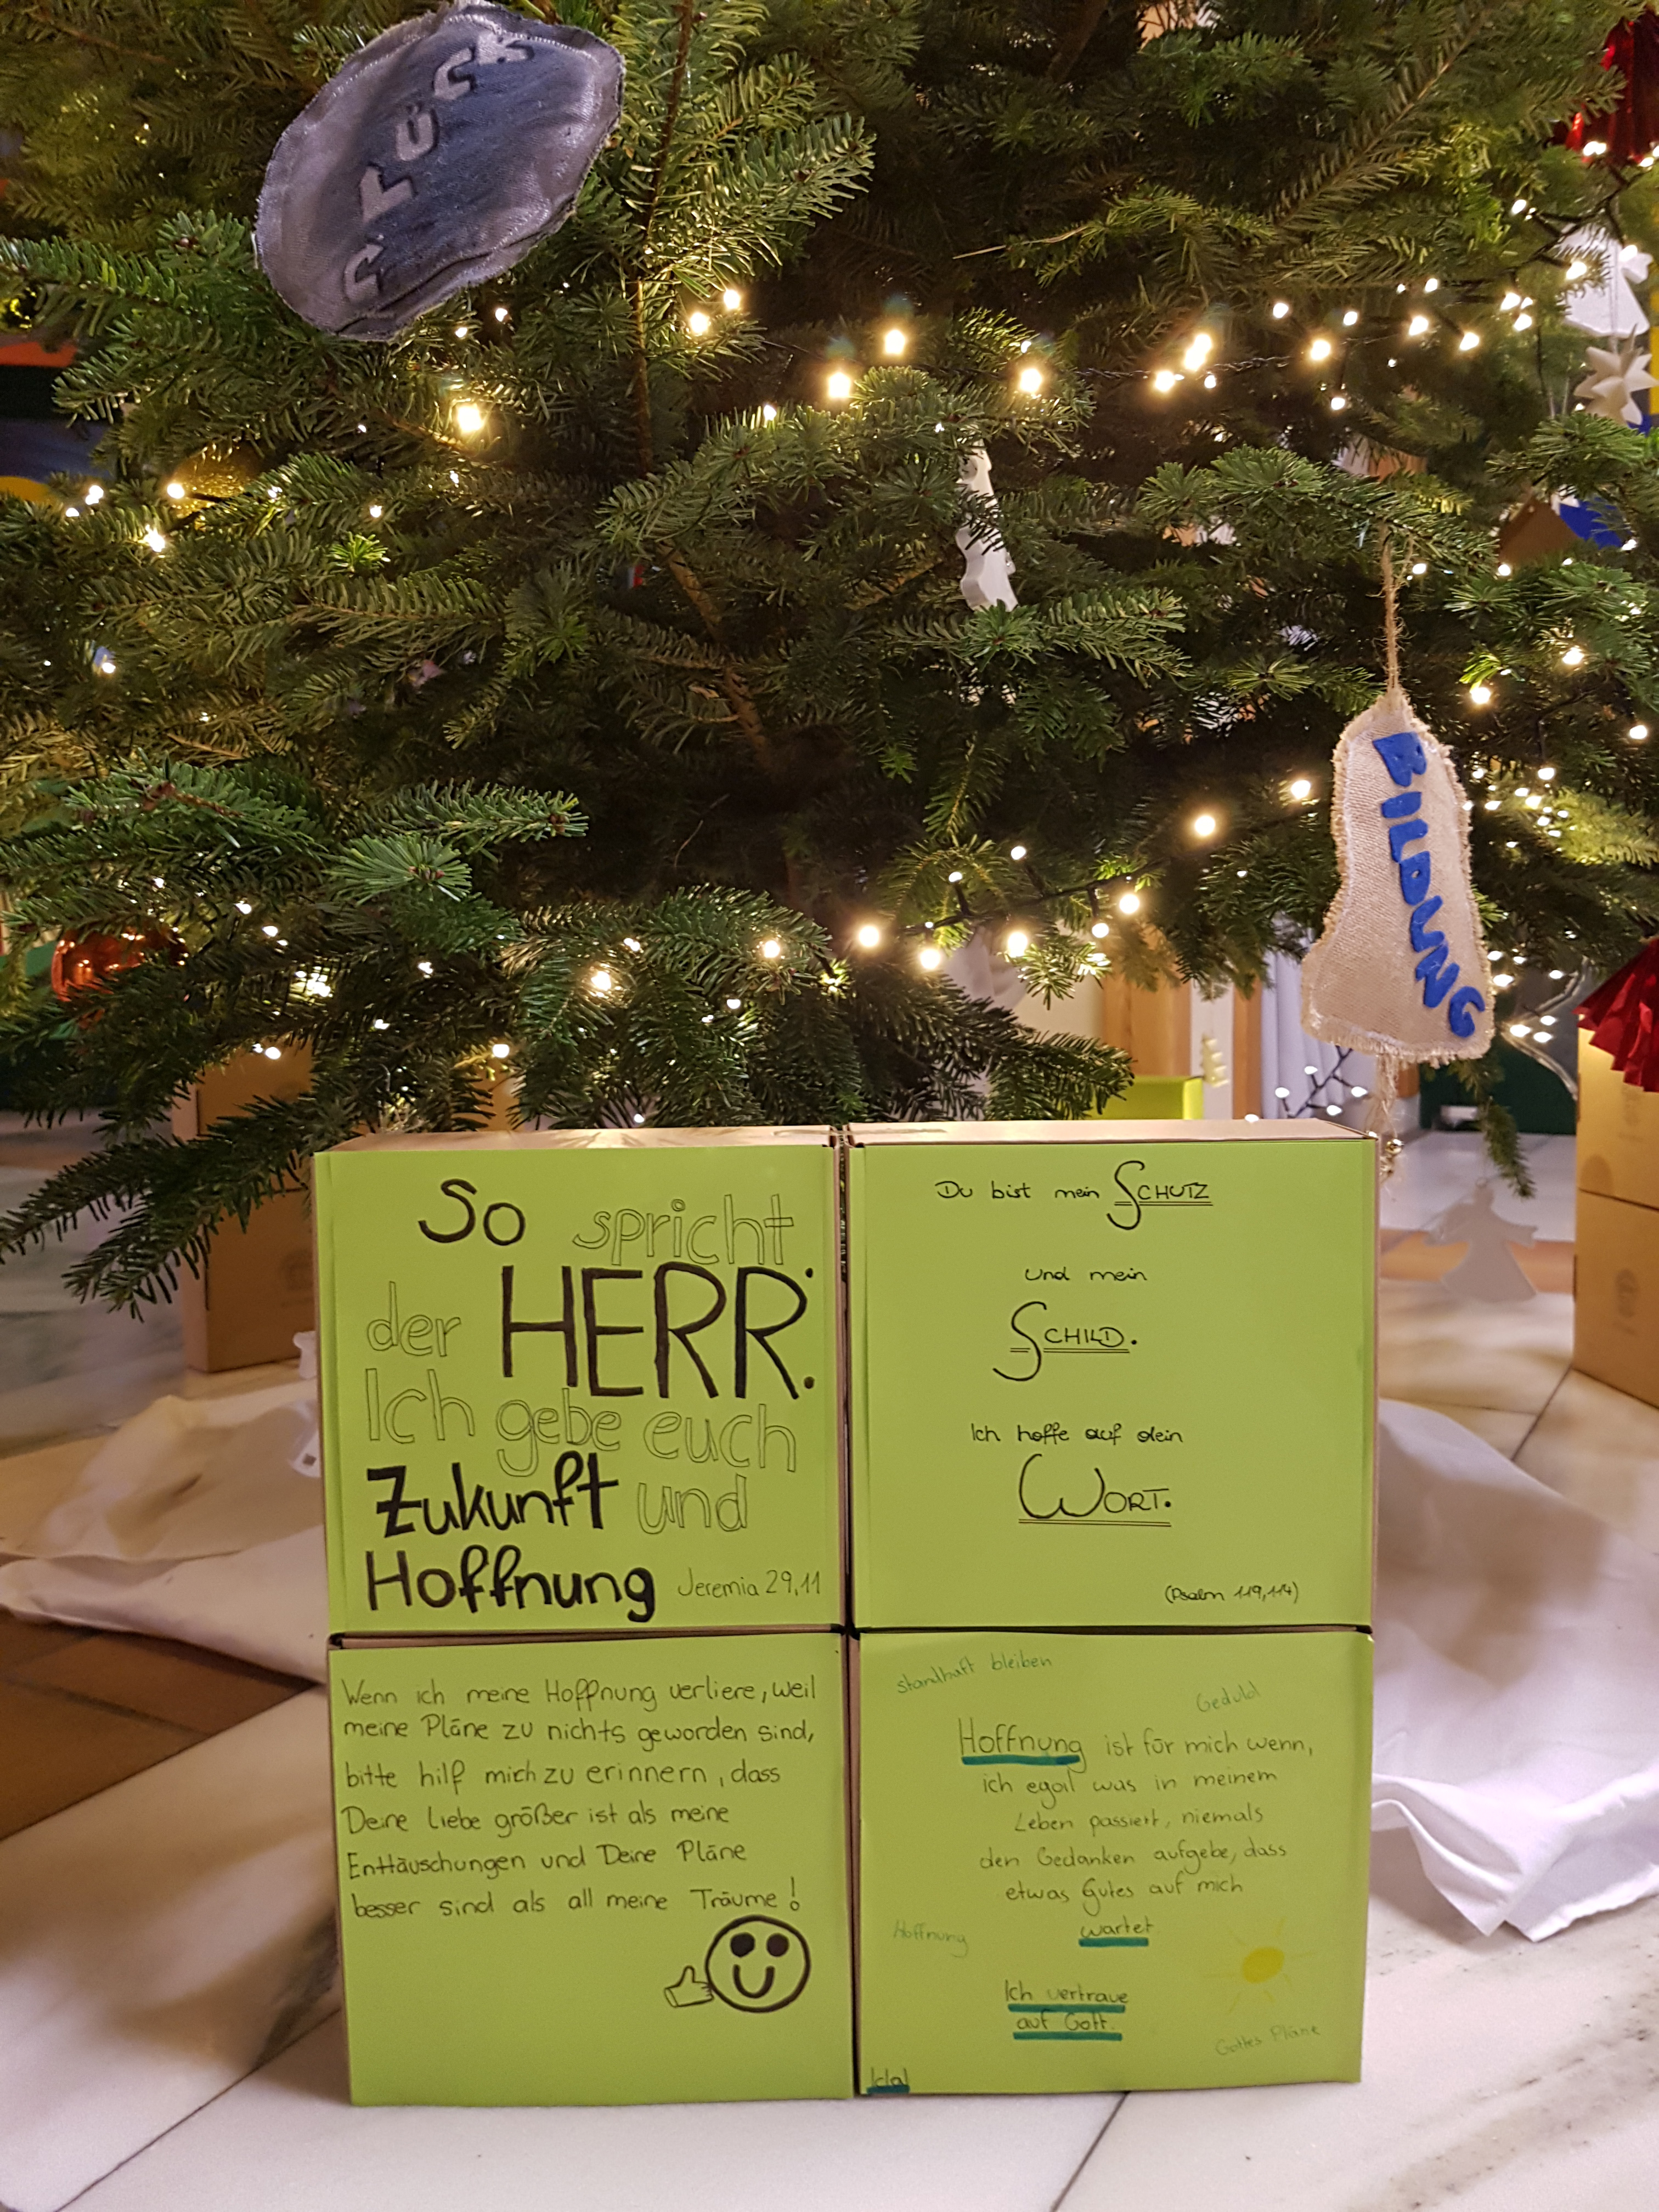 GLÜCK
BILDUNG
So spricht
der HERR:
Ich gebe euch
Zukunft und
Hoffnung Jeremia 29,11
Du bist mein SCHUTZ
und mein
SCHILD.
Ich hoffe auf dein
WORT.
(Psalm 119,114)
Wenn ich meine Hoffnung verliere, weil
meine Pläne zu nichts geworden sind,
bitte hilf mich zu erinnern, dass
Deine Liebe größer ist als meine
Enttäuschungen und Deine Pläne
besser sind als all meine Träume!
standhaft bleiben
Geduld
Hoffnung ist für mich wenn,
ich egal was in meinem
Leben passiert, niemals
den Gedanken aufgebe, dass
etwas Gutes auf mich
wartet
Hoffnung
Ich vertraue
auf Gott.
Gottes Pläne